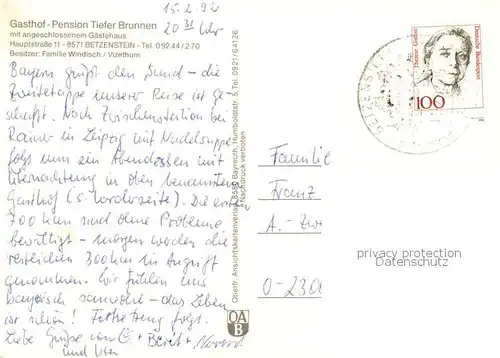 15.2.92
20 31 Uhr
Gasthof - Pension Tiefer Brunnen
mit angeschlossenem Gästehaus
Hauptstraße 11 - 8571 BETZENSTEIN - Tel. 09244/270
Besitzer: Familie Windisch / Vizethum
Bayern grüßt den Sund – die
Zweitetappe unserer Reise ist ge-
schafft. Nach Zwischenstation bei
in Leipzig mit Nudelsuppe
folgt nun ein Abendessen mit
Übernachtung in oben benanntem
Gasthof (s. Vorderseite). Die ersten
700 km sind ohne Probleme
bewältigt – morgen werden die
restlichen 300 km in Angriff
genommen. Wir fühlen uns
bayerisch sauwohl – das Leben
ist schön! Fortsetzung folgt.
Liebe Grüße von + Berit +
und
Oberfr. Ansichtskartenverlag, 8580 Bayreuth, Humboldtstr. 5, Tel. 0921/64126
Nachdruck verboten
OA
B
Therese Giehse
Deutsche Bundespost
100
BETZENSTEIN
Familie
Franz
A.-Zw
O-230
privacy protection
Datenschutz